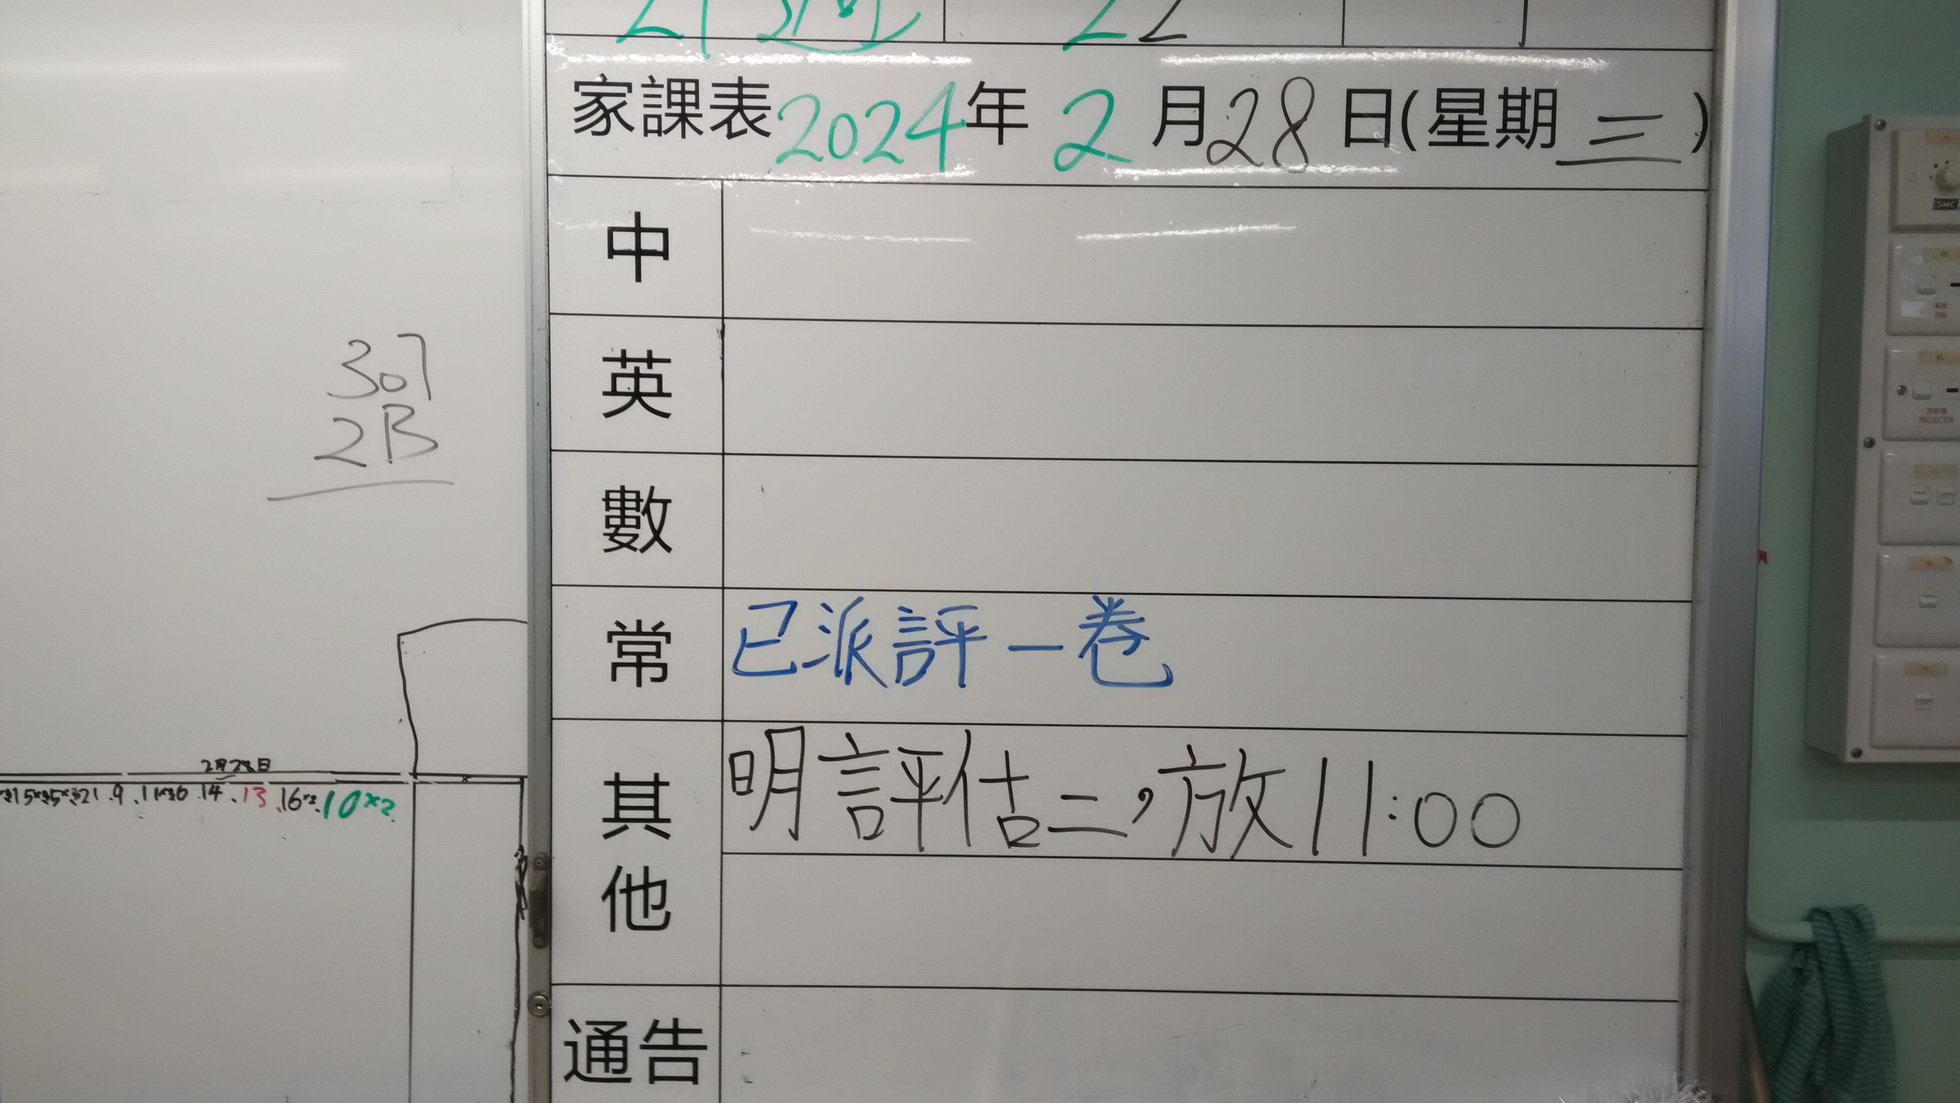 22
家課表2024年2月28日(星期三)
中
英
數
常 已派評一卷
其他 明評估二,放11:00
通告
307
2B
2月28日
.9 .11 .14 .13 .16 10×2
PROJECTOR
SMC